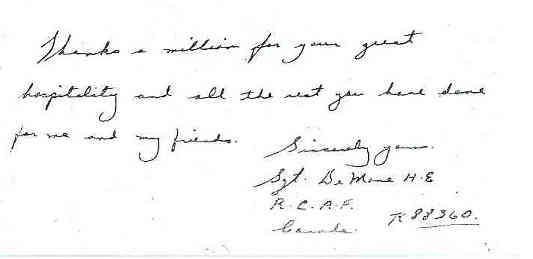 Thanks a million for your great
hospitality and all the rest you have done
for me and my friends.
Sincerely yours.
Sgt. DeMone H.E
R.C.A.F.
Canada. R88360.